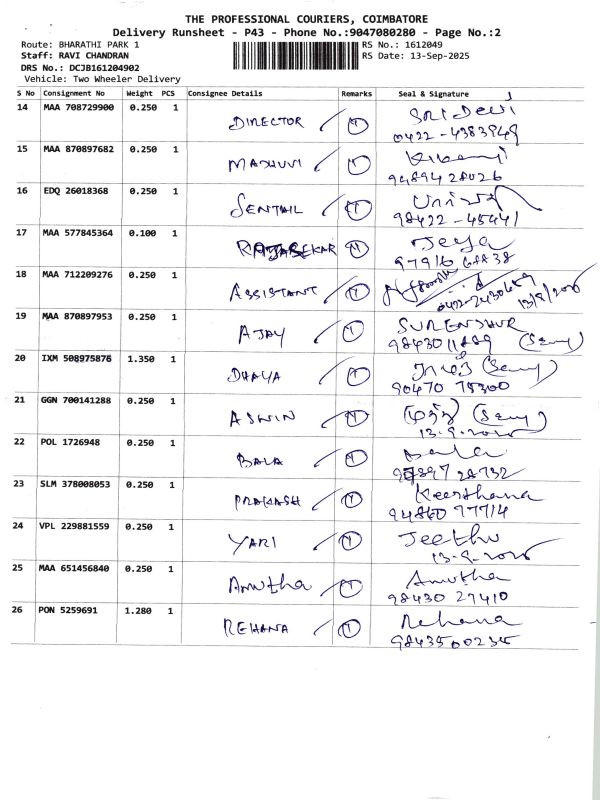 THE PROFESSIONAL COURIERS, COIMBATORE
Delivery Runsheet - P43 - Phone No.:9047080280 - Page No.:2
Route: BHARATHI PARK 1
RS No.: 1612049
Staff: RAVI CHANDRAN
RS Date: 13-Sep-2025
DRS No.: DCJB161204902
Vehicle: Two Wheeler Delivery
S No Consignment No Weight PCS Consignee Details Remarks Seal & Signature
14 MAA 708729900 0.250 1 DIRECTOR SRIDEVI
0422-4383949
15 MAA 870897682 0.250 1 MADHUVI
94894 28026
16 EDQ 26018368 0.250 1 SENTHIL
98422-45441
17 MAA 577845364 0.100 1 RAJASEKAR Jeya
97916
18 MAA 712209276 0.250 1 ASSISTANT
0422-2430659
19 MAA 870897953 0.250 1 AJAY SURENDHUR
20 IXM 508975876 1.350 1 DHAYA
90470 75300
21 GGN 700141288 0.250 1 ASWIN
22 POL 1726948 0.250 1 BALA Bala
97897 28732
23 SLM 378008053 0.250 1 PRAKASH Keerthana
94860 97714
24 VPL 229881559 0.250 1 YARI Jeethu
25 MAA 651456840 0.250 1 Amutha Amutha
98430 27410
26 PON 5259691 1.280 1 REHANA Rehana
98435 00235